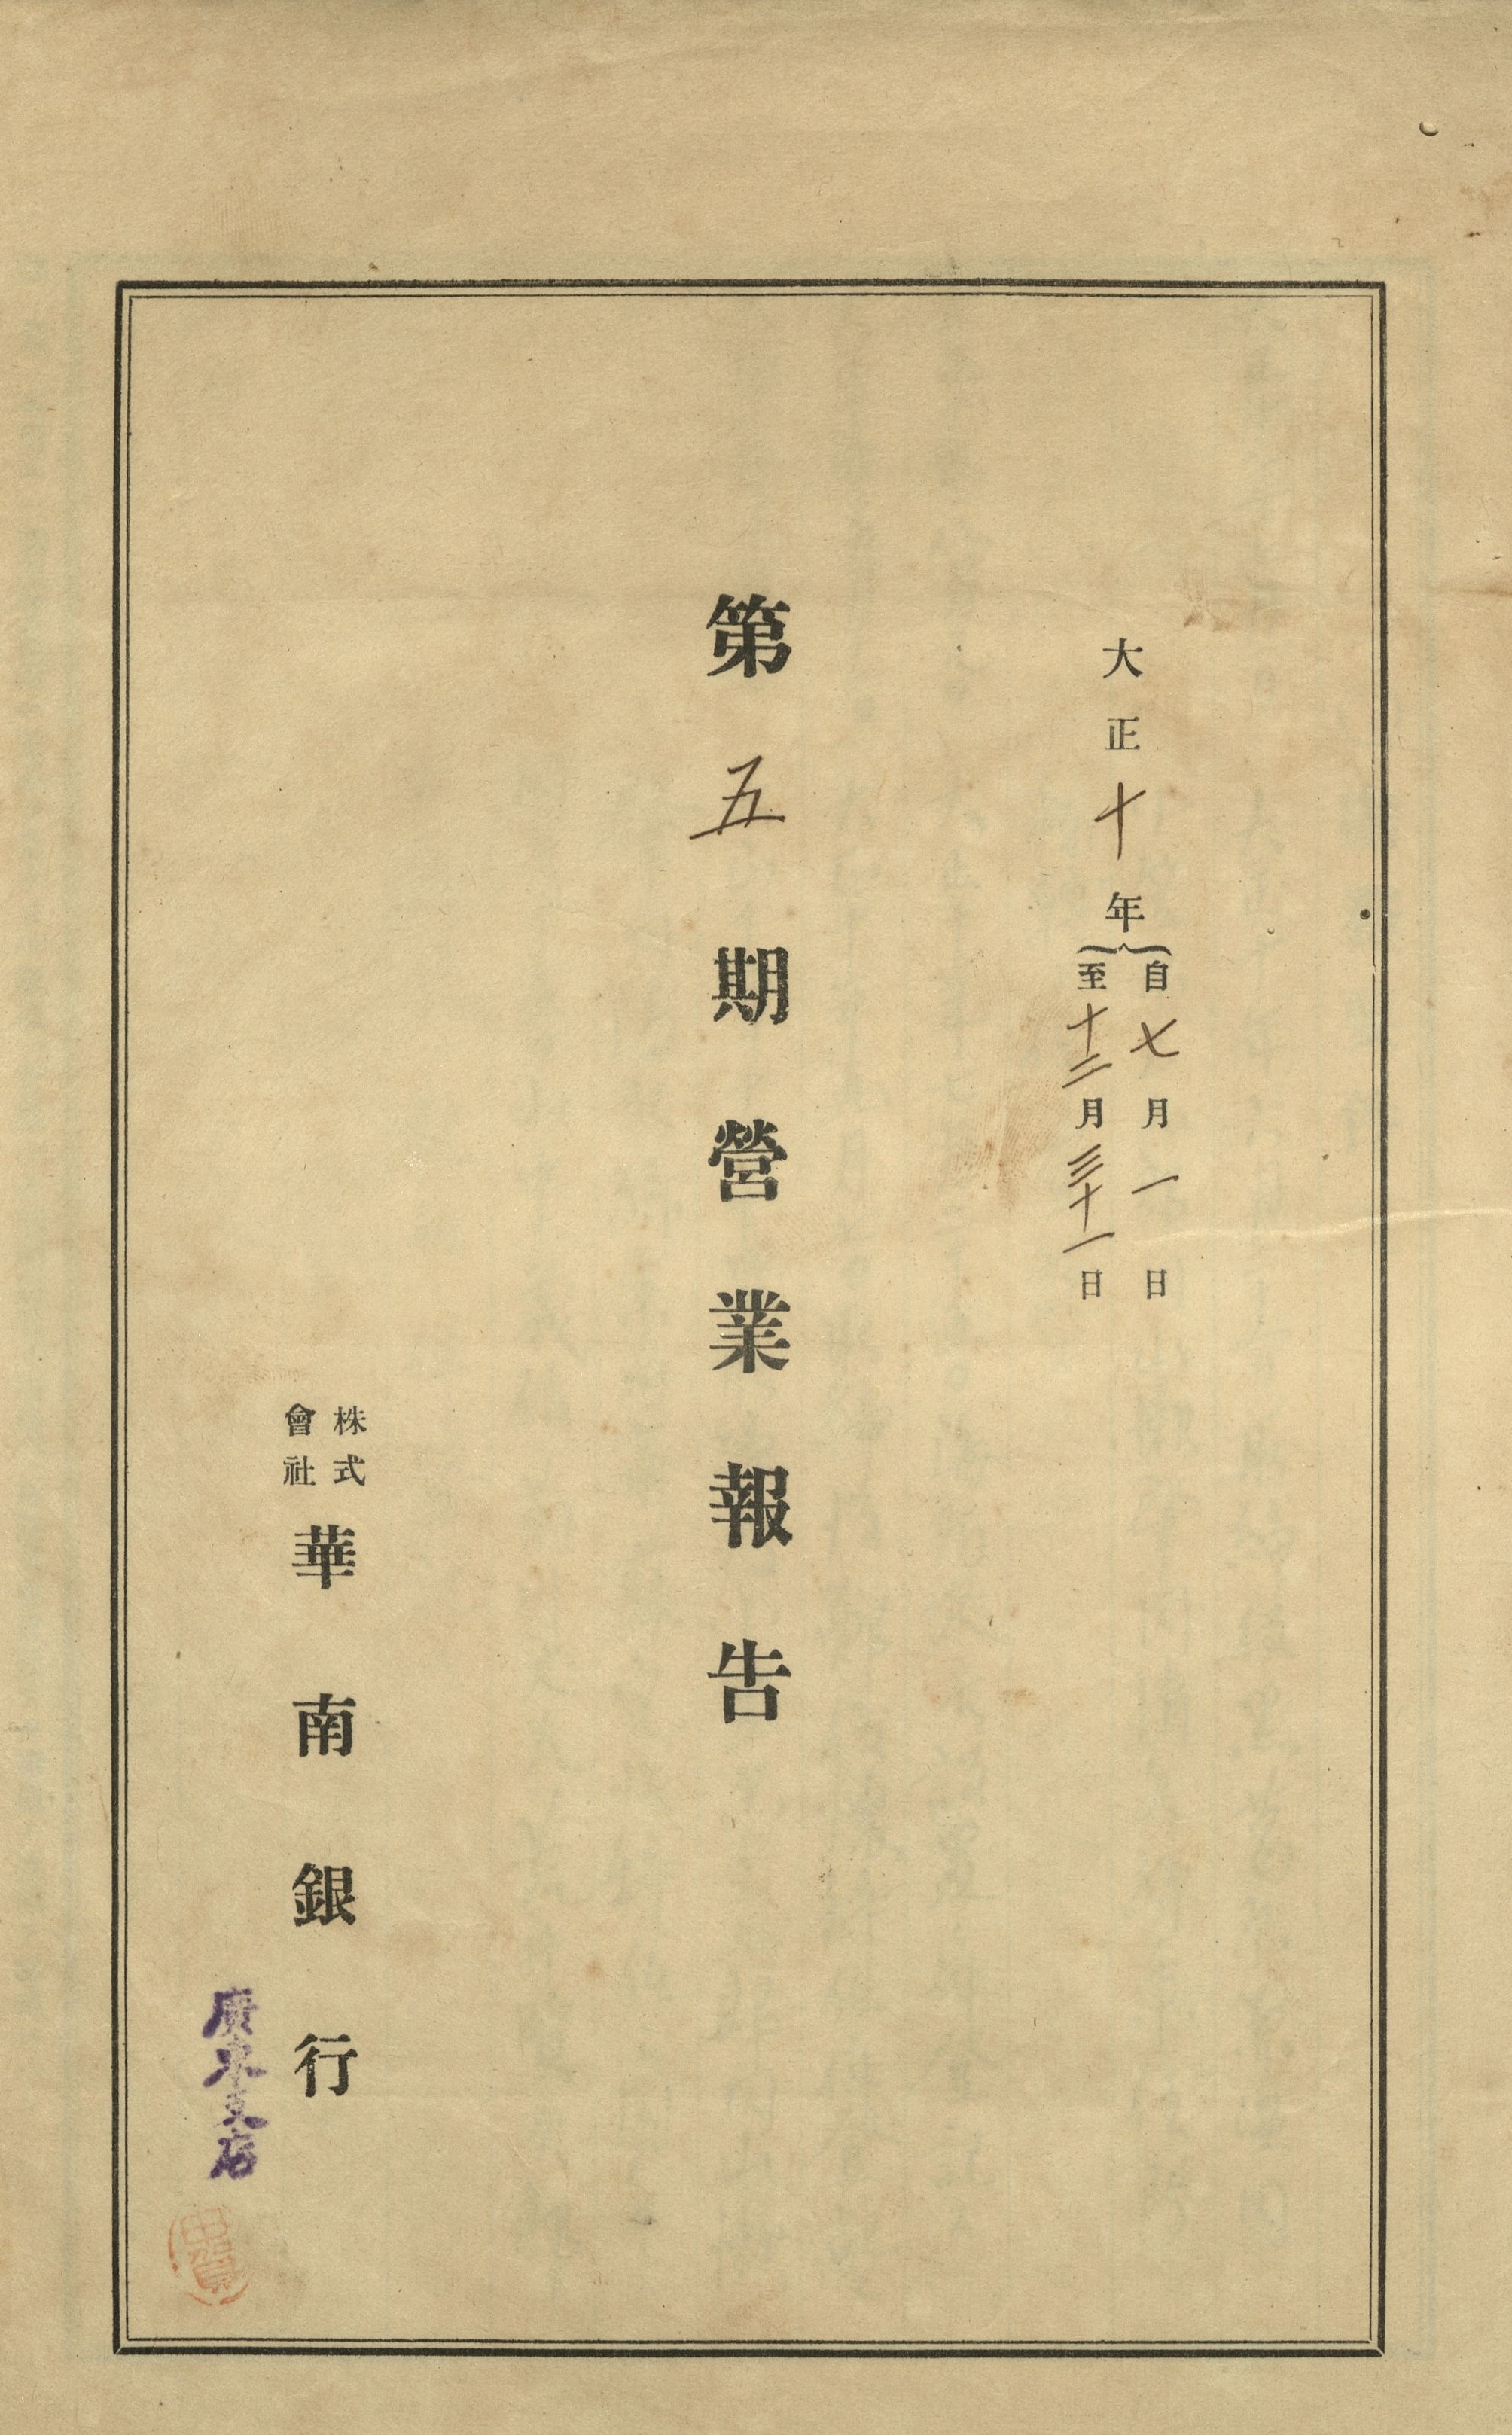 大正十年
自七月一日
至十二月三十一日
第五期營業報告
株式
會社
華南銀行
廣東支店